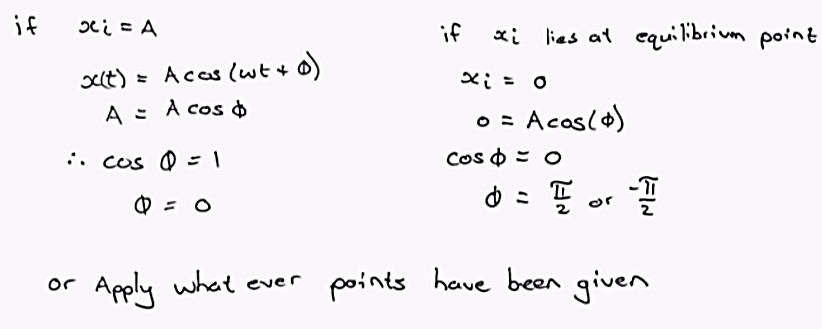 if xi = A
x(t) = A cos (ωt + Φ)
A = A cos Φ
∴ cos Φ = 1
Φ = 0
if xi lies at equilibrium point
xi = 0
0 = A cos(Φ)
cos Φ = 0
Φ = π/2 or -π/2
or Apply what ever points have been given